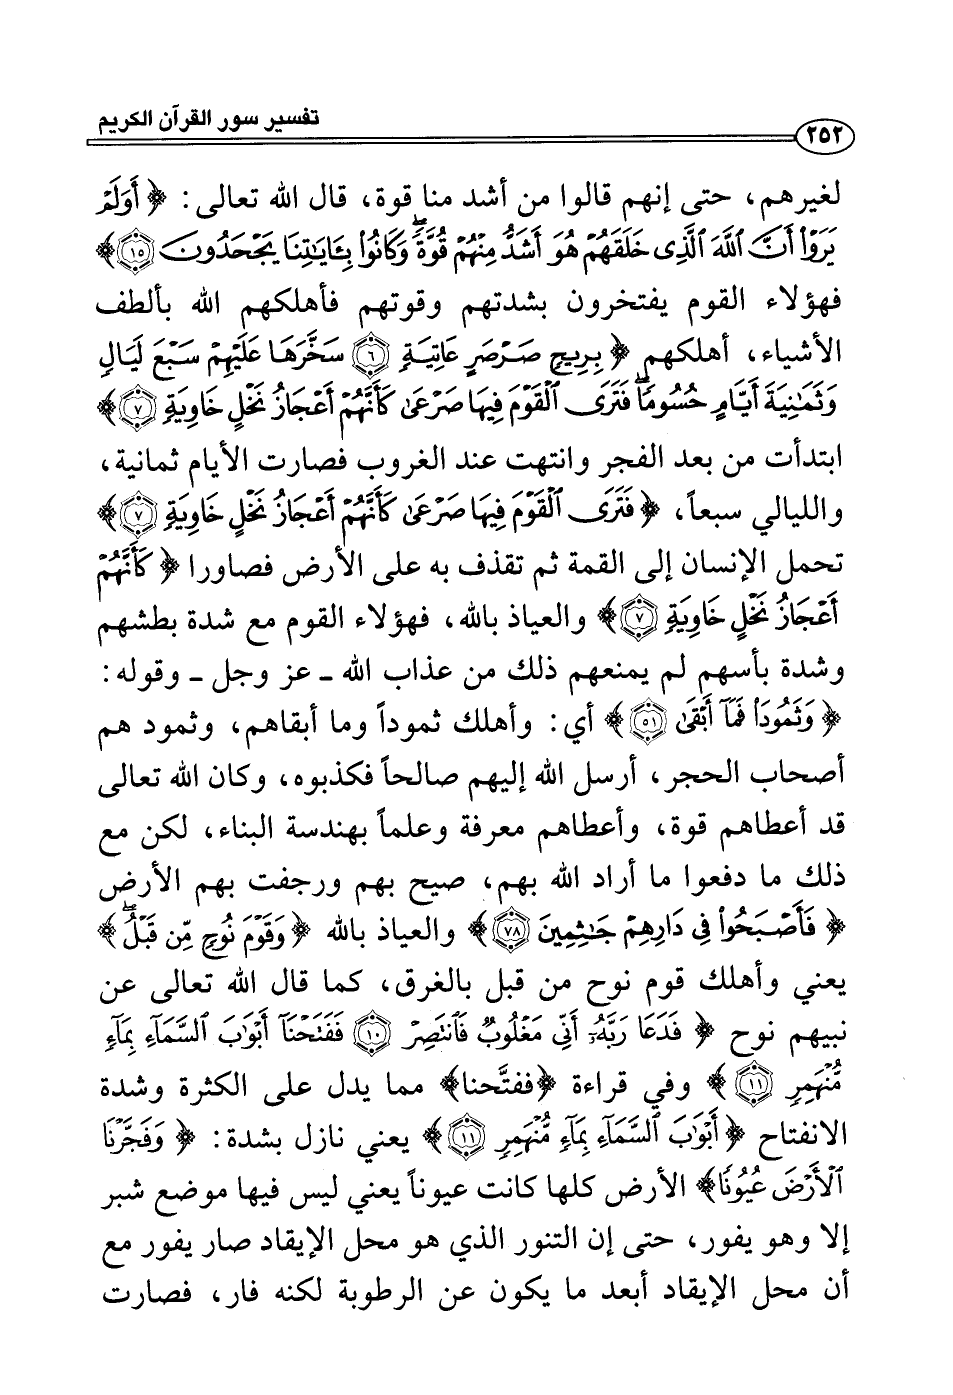 تفسير سور القرآن الكريم
٢٥٢
لغيرهم، حتى إنهم قالوا من أشد منا قوة، قال الله تعالى: ﴿ أَوَلَمْ
يَرَوْا۟ أَنَّ ٱللَّهَ ٱلَّذِى خَلَقَهُمْ هُوَ أَشَدُّ مِنْهُمْ قُوَّةً ۖ وَكَانُوا۟ بِـَٔايَـٰتِنَا يَجْحَدُونَ ١٥ ﴾
فهؤلاء القوم يفتخرون بشدتهم وقوتهم فأهلكهم الله بألطف
الأشياء، أهلكهم ﴿ بِرِيحٍ صَرْصَرٍ عَاتِيَةٍ ٦ سَخَّرَهَا عَلَيْهِمْ سَبْعَ لَيَالٍ
وَثَمَـٰنِيَةَ أَيَّامٍ حُسُومًا ۖ فَتَرَى ٱلْقَوْمَ فِيهَا صَرْعَىٰ كَأَنَّهُمْ أَعْجَازُ نَخْلٍ خَاوِيَةٍ ٧ ﴾
ابتدأت من بعد الفجر وانتهت عند الغروب فصارت الأيام ثمانية،
والليالي سبعاً، ﴿ فَتَرَى ٱلْقَوْمَ فِيهَا صَرْعَىٰ كَأَنَّهُمْ أَعْجَازُ نَخْلٍ خَاوِيَةٍ ٧ ﴾
تحمل الإنسان إلى القمة ثم تقذف به على الأرض فصاورا ﴿ كَأَنَّهُمْ
أَعْجَازُ نَخْلٍ خَاوِيَةٍ ٧ ﴾ والعياذ بالله، فهؤلاء القوم مع شدة بطشهم
وشدة بأسهم لم يمنعهم ذلك من عذاب الله ـ عز وجل ـ وقوله:
﴿ وَثَمُودَا۟ فَمَآ أَبْقَىٰ ٥١ ﴾ أي: وأهلك ثموداً وما أبقاهم، وثمود هم
أصحاب الحجر، أرسل الله إليهم صالحاً فكذبوه، وكان الله تعالى
قد أعطاهم قوة، وأعطاهم معرفة وعلماً بهندسة البناء، لكن مع
ذلك ما دفعوا ما أراد الله بهم، صيح بهم ورجفت بهم الأرض
﴿ فَأَصْبَحُوا۟ فِى دَارِهِمْ جَـٰثِمِينَ ٧٨ ﴾ والعياذ بالله ﴿ وَقَوْمَ نُوحٍ مِّن قَبْلُ ۖ ﴾
يعني وأهلك قوم نوح من قبل بالغرق، كما قال الله تعالى عن
نبيهم نوح ﴿ فَدَعَا رَبَّهُۥٓ أَنِّى مَغْلُوبٌ فَٱنتَصِرْ ١٠ فَفَتَحْنَآ أَبْوَٰبَ ٱلسَّمَآءِ بِمَآءٍ
مُّنْهَمِرٍ ١١ ﴾ وفي قراءة ﴿ففتَّحنا﴾ مما يدل على الكثرة وشدة
الانفتاح ﴿ أَبْوَٰبَ ٱلسَّمَآءِ بِمَآءٍ مُّنْهَمِرٍ ١١ ﴾ يعني نازل بشدة: ﴿ وَفَجَّرْنَا
ٱلْأَرْضَ عُيُونًا﴾ الأرض كلها كانت عيوناً يعني ليس فيها موضع شبر
إلا وهو يفور، حتى إن التنور الذي هو محل الإيقاد صار يفور مع
أن محل الإيقاد أبعد ما يكون عن الرطوبة لكنه فار، فصارت